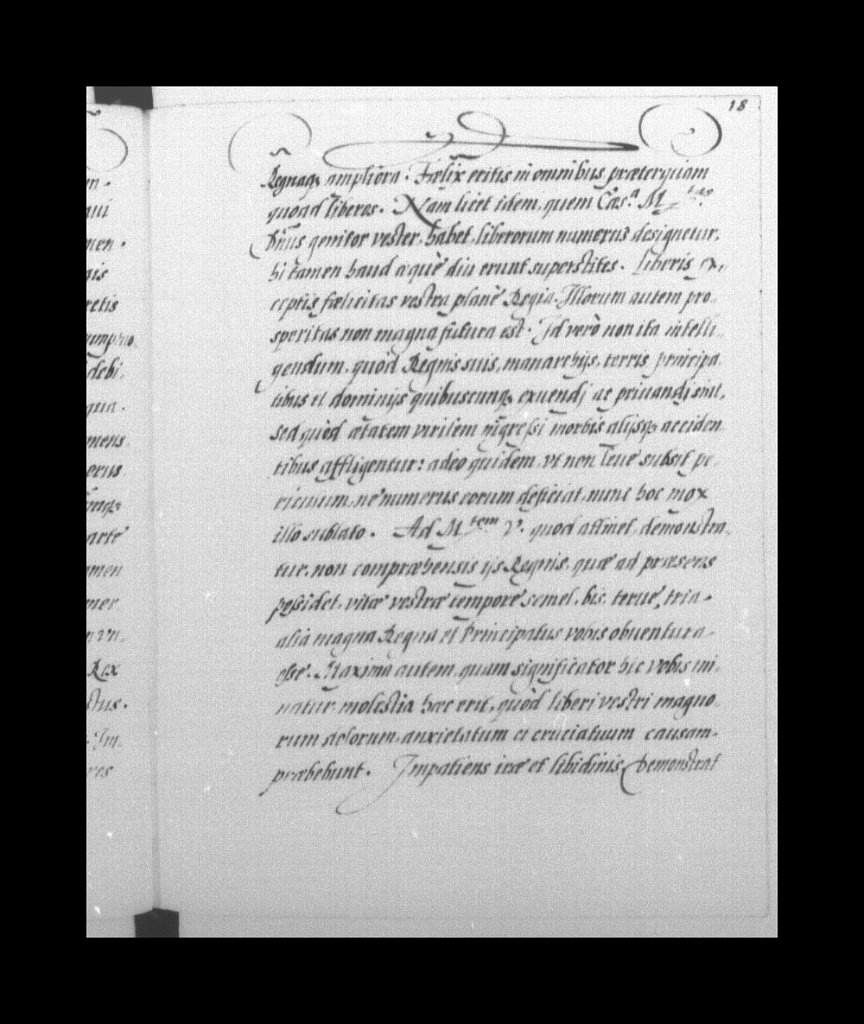 18
Regnaq; ampliora. Fœlix eritis in omnibus, præterquam
quoad liberos. Nam licet idem, quem Cæs.ª M.tas
genitor vester, habet, liberorum numerus designetur,
hi tamen haud æquè diu erunt superstites. Liberis ex,
ceptis fœlicitas vestra planè Regia. Illorum autem pro,
speritas non magna futura est. Id verò non ita intelli,
gendum, quòd Regnis suis, monarchijs, terris principa,
tibus et dominijs quibuscunq; exuendj ac priuandj sint,
sed quòd ætatem virilem ingressi morbis alijsq; acciden
tibus affligentur: adeo quidem, vt non leue subsit pe,
riculum, ne numerus eorum deficiat, nunc hoc mox
illo sublato. Ad M.tem V. quod attinet, demonstra,
tur, non compræhensis ijs Regnis, quæ ad præsens
possidet, vitæ vestræ tempore semel, bis, terue, tria,
alia magna Regna et Principatus vobis obuentura,
esse. Maxima autem, quam significator hic vobis mi,
natur, molestia hæc erit, quòd liberi vestri magno,
rum dolorum, anxietatum et cruciatuum causam,
præbebunt. Impatiens iræ et libidinis demonstrat
en.
qui
men.
gis
retis
debi,
qua.
mens
erus
arte
men
mer
n vn,
Rex
ctus.
Im,
res